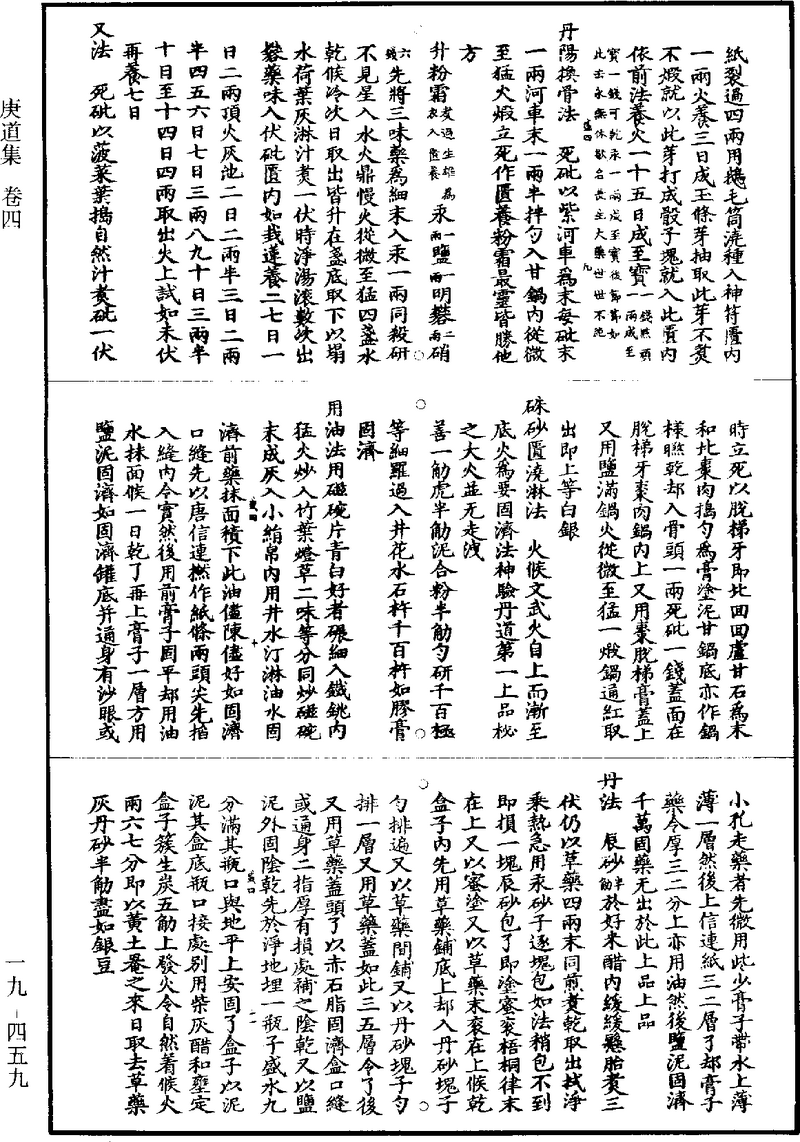 庚道集 卷四
一九-四五九
紙裂過四兩用鵝毛筒澆種入神符匱內
一兩火養三日成玉條芽抽取此芽不煑
不煅就以此芽打成骰子塊就入此匱內
依前法養火一十五日成至寶一錢點銅一兩成至
寶一錢可乾汞一兩成至寶後節節如
此去永無休歇名長生大藥世世不絕
丹陽換骨法 死砒以紫河車爲末每砒末
一兩河車末一兩半拌勻入甘鍋內從微
至猛火煅立死作匱養粉霜最靈皆勝他
方
升粉霜 汞一兩鹽一兩明礬二兩硝
六錢先將三味藥爲細末入汞一兩同殺研
不見星入水火鼎慢火從微至猛四盞水
乾候冷次日取出皆升在盞底取下以塌
水荷葉灰淋汁煑一伏時淨湯滾數次出
礬藥味入伏砒匱內如栽蓮養二七日一
日二兩頂火灰池二日二兩半三日二兩
半四五六日七日三兩八九十日三兩半
十日至十四日四兩取出火上試如未伏
再養七日
又法 死砒以菠菜葉搗自然汁煑砒一伏
時立死以脫梯牙即比回回盧甘石爲末
和北棗肉搗勻爲膏塗泥甘鍋底亦作鍋
樣曬乾却入骨頭一兩死砒一錢蓋面在
脫梯牙棗肉鍋內上又用棗脫梯膏蓋上
又用鹽滿鍋火從微至猛一煅鍋通紅取
出即上等白銀
硃砂匱澆淋法 火候文武火自上而漸至
底火爲要固濟法神驗丹道第一上品秘
之大火並无走洩
善一觔虎半觔泥合粉半觔勻研千百極
等細羅過入井花水石杵千百杵如膠膏
固濟
用油法用磁碗片青白好者碾細入鐵銚內
猛火炒入竹葉燈草二味等分同炒磁碗
末成灰入小絹帛內用井水汀淋油水固
濟前藥抹面積下此油儘陳儘好如固濟
口縫先以唐信連撚作紙條兩頭尖先掐
入縫內令實然後用前膏子固平却用油
水抹面候一日乾了再上膏子一層方用
鹽泥固濟如固濟罐底并通身有沙眼或
小孔走藥者先微用此少膏子帶水上薄
薄一層然後上信連紙三二層了却膏子
藥令厚三二分上亦用油然後鹽泥固濟
千萬固藥无出於此上品上品
丹法 辰砂半觔於好米醋內緩緩懸胎煑三
伏仍以草藥四兩末同煎煑乾取出拭淨
乘熱急用汞砂子逐塊包如法稍包不到
即損一塊辰砂包了即塗蜜衮梧桐律末
在上又以蜜塗又以草藥末衮在上候乾
盒子內先用草藥鋪底上却入丹砂塊子
勻排遍又以草藥間鋪又以丹砂塊子勻
排一層又用草藥蓋如此三五層令了後
又用草藥蓋頭了以赤石脂固濟盒口縫
或通身二指厚有損處補之陰乾又以鹽
泥外固陰乾先於淨地埋一瓶子盛水九
分滿其瓶口與地平上安固了盒子以泥
泥其盒底瓶口接處別用柴灰醋和壅定
盒子簇生炭五觔上發火令自然着候火
兩六七分即以黃土罨之來日取去草藥
灰丹砂半觔盡如銀豆